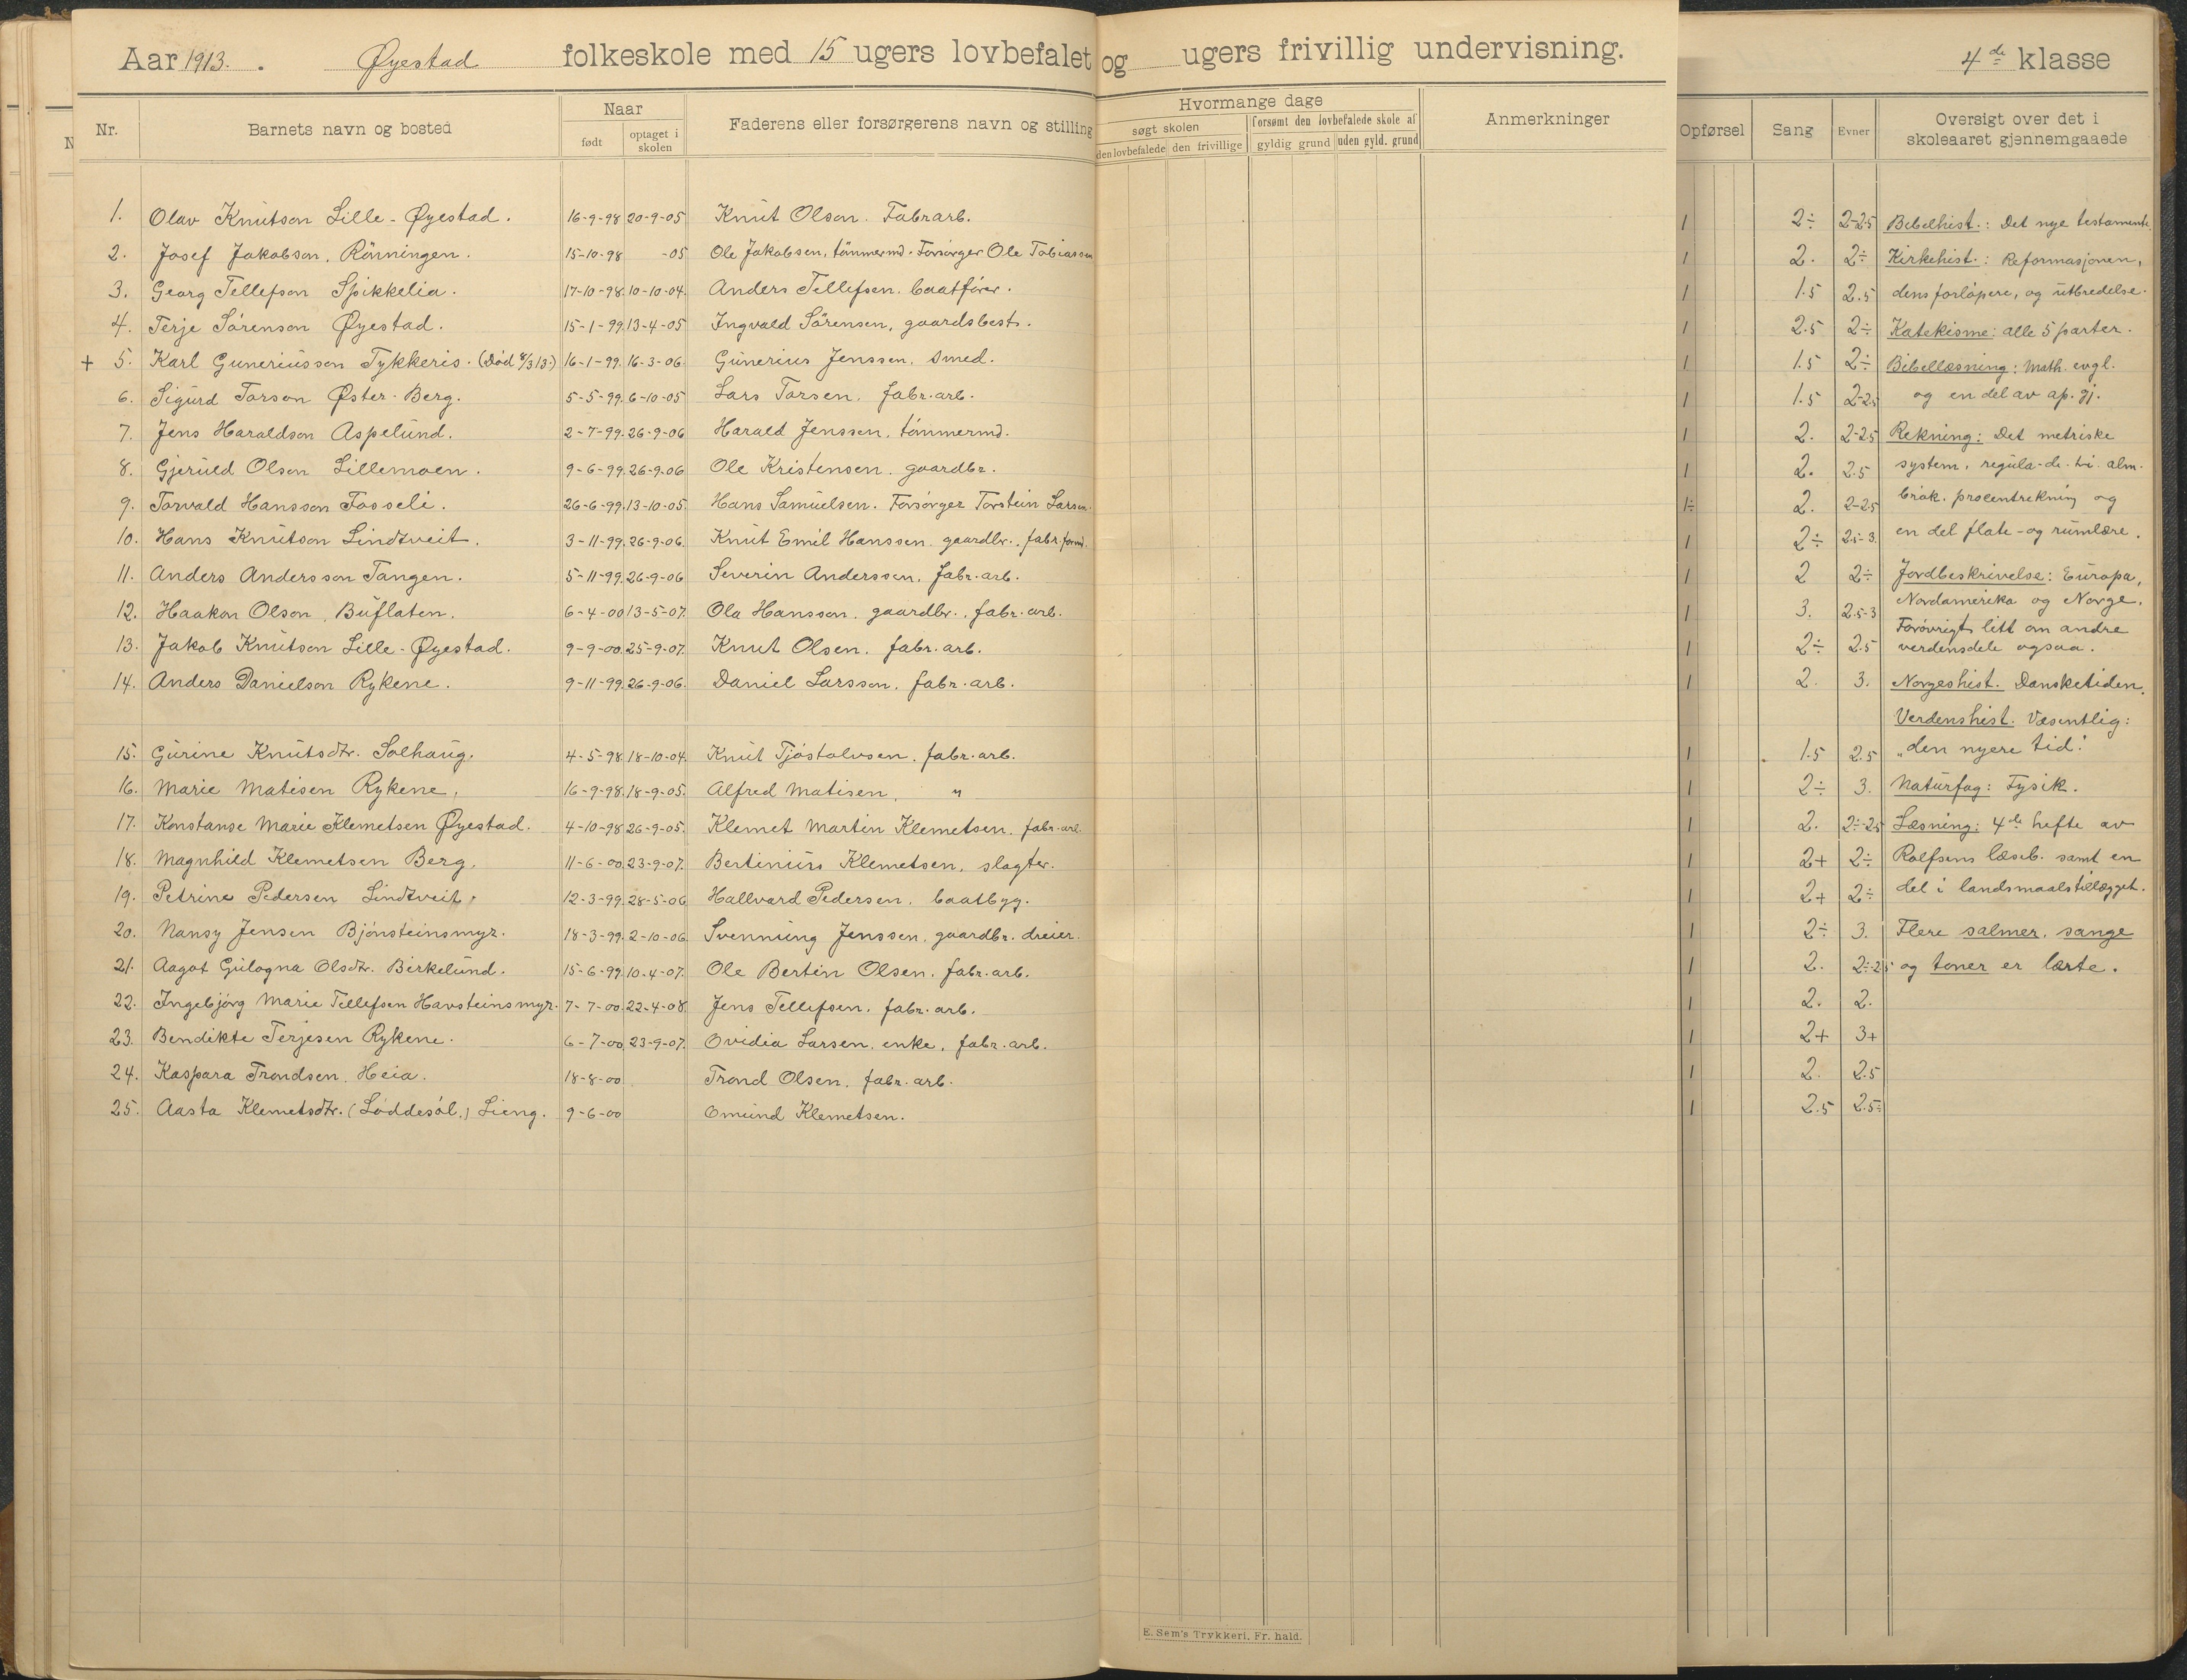 Aar 1913. Øyestad folkeskole med 15 ugers lovbefalet og ugers frivillig undervisning. 4de klasse
Nr. Barnets navn og bosted Naar født optaget i skolen Faderens eller forsørgerens navn og stilling Hvormange dage søgt skolen den lovbefalede den frivillige forsømt den lovbefalede skole af gyldig grund uden gyld. grund Anmerkninger Opførsel Sang Evner Oversigt over det i skoleaaret gjennemgaaede
1. Olav Knutson Lille-Øyestad. 16-9-98 20-9-05 Knut Olson. Fabrarb. 1 2÷ 2-2.5 Bibelhist.: Det nye testamente.
2. Josef Jakobson, Rönningen. 15-10-98 -05 Ole Jakobsen, tömmermd. Forsörger Ole Tobiassen 1 2. 2÷ Kirkehist.: Reformasjonen,
3. Georg Tellefson Spikkelia. 17-10-98. 10-10-04. Anders Tellefsen. baatförer. 1 1.5 2.5 dens forlöpere, og utbredelse.
4. Terje Sörenson Øyestad. 15-1-99. 13-4-05 Ingvald Sörensen, gaardsbest. 1 2.5 2÷ Katekisme: alle 5 parter.
+ 5. Karl Guneriusson Tykkeris. (Död 4/3 13.) 16-1-99. 16-3-06. Gunerius Jenssen, smed. 1 1.5 2÷ Bibellæsning: Math. evgl.
6. Sigurd Torson Øster-Berg. 5-5-99. 6-10-05 Lars Torsen, fabr.arb. 1 1.5 2-2.5 og en del av ap. gj.
7. Jens Haraldson Aspelund. 2-7-99. 26-9-06 Harald Jenssen, tömmermd. 1 2. 2-2.5 Rekning: Det metriske
8. Gjeruld Olson Lillemoen. 9-6-99. 26-9-06 Ole Kristensen. gaardbr. 1 2. 2.5 system, regula-de-tri. alm.
9. Torvald Hansson Fosseli. 26-6-99. 13-10-05. Hans Samuelsen. Forsörger Torstein Larsen. 1÷ 2. 2-2.5 brök. procentrekning og
10. Hans Knutson Lindtveit. 3-11-99. 26-9-06. Knut Emil Hanssen. gaardbr., fabr.formd. 1 2÷ 2.5-3. en del flate-og rumlære.
11. Anders Andersson Tangen. 5-11-99. 26-9-06 Severin Anderssen, fabr.arb. 1 2 2÷ Jordbeskrivelse: Europa,
12. Haakon Olson, Buflaten. 6-4-00 13-5-07. Ola Hansson. gaardbr., fabr.arb. 1 3. 2.5-3 Nordamerika og Norge.
Forövrigt litt om andre
13. Jakob Knutson Lille-Øyestad. 9-9-00. 25-9-07. Knut Olsen. fabr.arb. 1 2÷ 2.5 verdensdele ogsaa.
14. Anders Danielson Rykene. 9-11-99. 26-9-06. Daniel Larsson, fabr.arb. 1 2. 3. Norgeshist. Dansketiden.
Verdenshist. Væsentlig:
15. Gurine Knutsdtr. Solhaug. 4-5-98. 18-10-04. Knut Tjöstolvsen, fabr.arb. 1 1.5 2.5 „den nyere tid."
16. Marie Matisen Rykene, 16-9-98. 18-9-05. Alfred Matisen, " 1 2÷ 3. Naturfag: Fysik.
17. Konstanse Marie Klemetsen Øyestad. 4-10-98 26-9-05. Klemet Martin Klemetsen. fabr.arb. 1 2. 2÷-2.5 Læsning: 4de hefte av
18. Magnhild Klemetsen Berg. 11-6-00. 23-9-07. Bertinius Klemetsen, slagter. 1 2+ 2÷ Rolfsens læseb. samt en
19. Petrine Pedersen Lindtveit. 12-3-99. 28-5-06 Hallvard Pedersen, baatbyg. 1 2+ 2÷ del i landsmaalstillægget.
20. Nansy Jensen Bjönsteinsmyr. 18-3-99. 2-10-06. Svenning Jenssen, gaardbr. dreier. 1 2÷ 3. Flere salmer, sange
21. Aagot Gulogna Olsdtr. Birkelund. 15-6-99. 10-4-07. Ole Bertin Olsen. fabr.arb. 1 2. 2÷2.5 og toner er lærte.
22. Ingebjörg Marie Tellefsen Havsteinsmyr. 7-7-00. 22-4-08. Jens Tellefsen, fabr.arb. 1 2. 2.
23. Bendikte Terjesen Rykene. 6-7-00. 23-9-07. Ovidia Larsen, enke, fabr.arb. 1 2+ 3+
24. Kaspara Trondsen, Heia. 18-8-00 Trond Olsen, fabr.arb. 1 2. 2.5
25. Aasta Klemetsdtr. (Løddesöl.) Lieng. 9-6-00 Omund Klemetsen. 1 2.5 2.5÷
E. Sem's Trykkeri, Fr.hald.